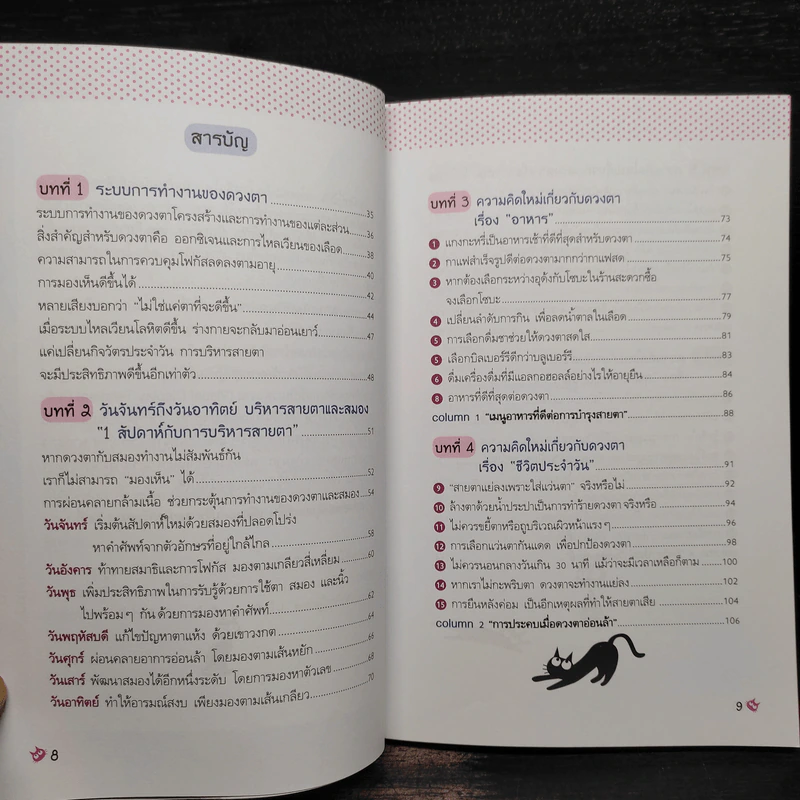 สารบัญ
บทที่ 1 ระบบการทำงานของดวงตา 35
ระบบการทำงานของดวงตาโครงสร้างและการทำงานของแต่ละส่วน 36
สิ่งสำคัญสำหรับดวงตาคือ ออกซิเจนและการไหลเวียนของเลือด 38
ความสามารถในการควบคุมโฟกัสลดลงตามอายุ 40
การมองเห็นดีขึ้นได้ 42
หลายเสียงบอกว่า "ไม่ใช่แค่ตาที่จะดีขึ้น" 44
เมื่อระบบไหลเวียนโลหิตดีขึ้น ร่างกายจะกลับมาอ่อนเยาว์ 47
แค่เปลี่ยนกิจวัตรประจำวัน การบริหารสายตา
จะมีประสิทธิภาพดีขึ้นอีกเท่าตัว 48
บทที่ 2 วันจันทร์ถึงวันอาทิตย์ บริหารสายตาและสมอง
"1 สัปดาห์กับการบริหารสายตา" 51
หากดวงตากับสมองทำงานไม่สัมพันธ์กัน
เราก็ไม่สามารถ "มองเห็น" ได้ 52
การผ่อนคลายกล้ามเนื้อ ช่วยกระตุ้นการทำงานของดวงตาและสมอง 54
วันจันทร์ เริ่มต้นสัปดาห์ใหม่ด้วยสมองที่ปลอดโปร่ง
หาคำศัพท์จากตัวอักษรที่อยู่ใกล้ไกล 58
วันอังคาร ท้าทายสมาธิและการโฟกัส มองตามเกลียวสี่เหลี่ยม 60
วันพุธ เพิ่มประสิทธิภาพในการรับรู้ด้วยการใช้ตา สมอง และนิ้ว
ไปพร้อมๆ กัน ด้วยการมองหาคำศัพท์ 62
วันพฤหัสบดี แก้ไขปัญหาตาแห้ง ด้วยเขาวงกต 64
วันศุกร์ ผ่อนคลายอาการอ่อนล้า โดยมองตามเส้นหยัก 66
วันเสาร์ พัฒนาสมองได้อีกหนึ่งระดับ โดยการมองหาตัวเลข 68
วันอาทิตย์ ทำให้อารมณ์สงบ เพียงมองตามเส้นเกลียว 70
8
บทที่ 3 ความคิดใหม่เกี่ยวกับดวงตา
เรื่อง "อาหาร" 73
1 แกงกะหรี่เป็นอาหารเช้าที่ดีที่สุดสำหรับดวงตา 74
2 กาแฟสำเร็จรูปดีต่อดวงตามากกว่ากาแฟสด 75
3 หากต้องเลือกระหว่างอุด้งกับโซบะในร้านสะดวกซื้อ
จงเลือกโซบะ 77
4 เปลี่ยนลำดับการกิน เพื่อลดน้ำตาลในเลือด 79
5 การเลือกดื่มชาช่วยให้ดวงตาสดใส 81
5 เลือกบิลเบอร์รีดีกว่าบลูเบอร์รี 83
6 ดื่มเครื่องดื่มที่มีแอลกอฮอลล์อย่างไรให้อายุยืน 84
8 อาหารที่ดีที่สุดต่อดวงตา 86
column 1 "เมนูอาหารที่ดีต่อการบำรุงสายตา" 88
บทที่ 4 ความคิดใหม่เกี่ยวกับดวงตา
เรื่อง "ชีวิตประจำวัน" 91
9 "สายตาแย่ลงเพราะใส่แว่นตา" จริงหรือไม่ 92
10 ล้างตาด้วยน้ำประปาเป็นการทำร้ายดวงตา จริงหรือ 94
11 ไม่ควรขยี้ตาหรือถูบริเวณผิวหน้าแรงๆ 96
12 การเลือกแว่นตากันแดด เพื่อปกป้องดวงตา 98
13 ไม่ควรนอนกลางวันเกิน 30 นาที แม้ว่าจะมีเวลาเหลือก็ตาม 100
14 หากเราไม่กะพริบตา ดวงตาจะทำงานแย่ลง 102
15 การยืนหลังค่อม เป็นอีกเหตุผลที่ทำให้สายตาเสีย 104
column 2 "การประคบเมื่อดวงตาอ่อนล้า" 106
9